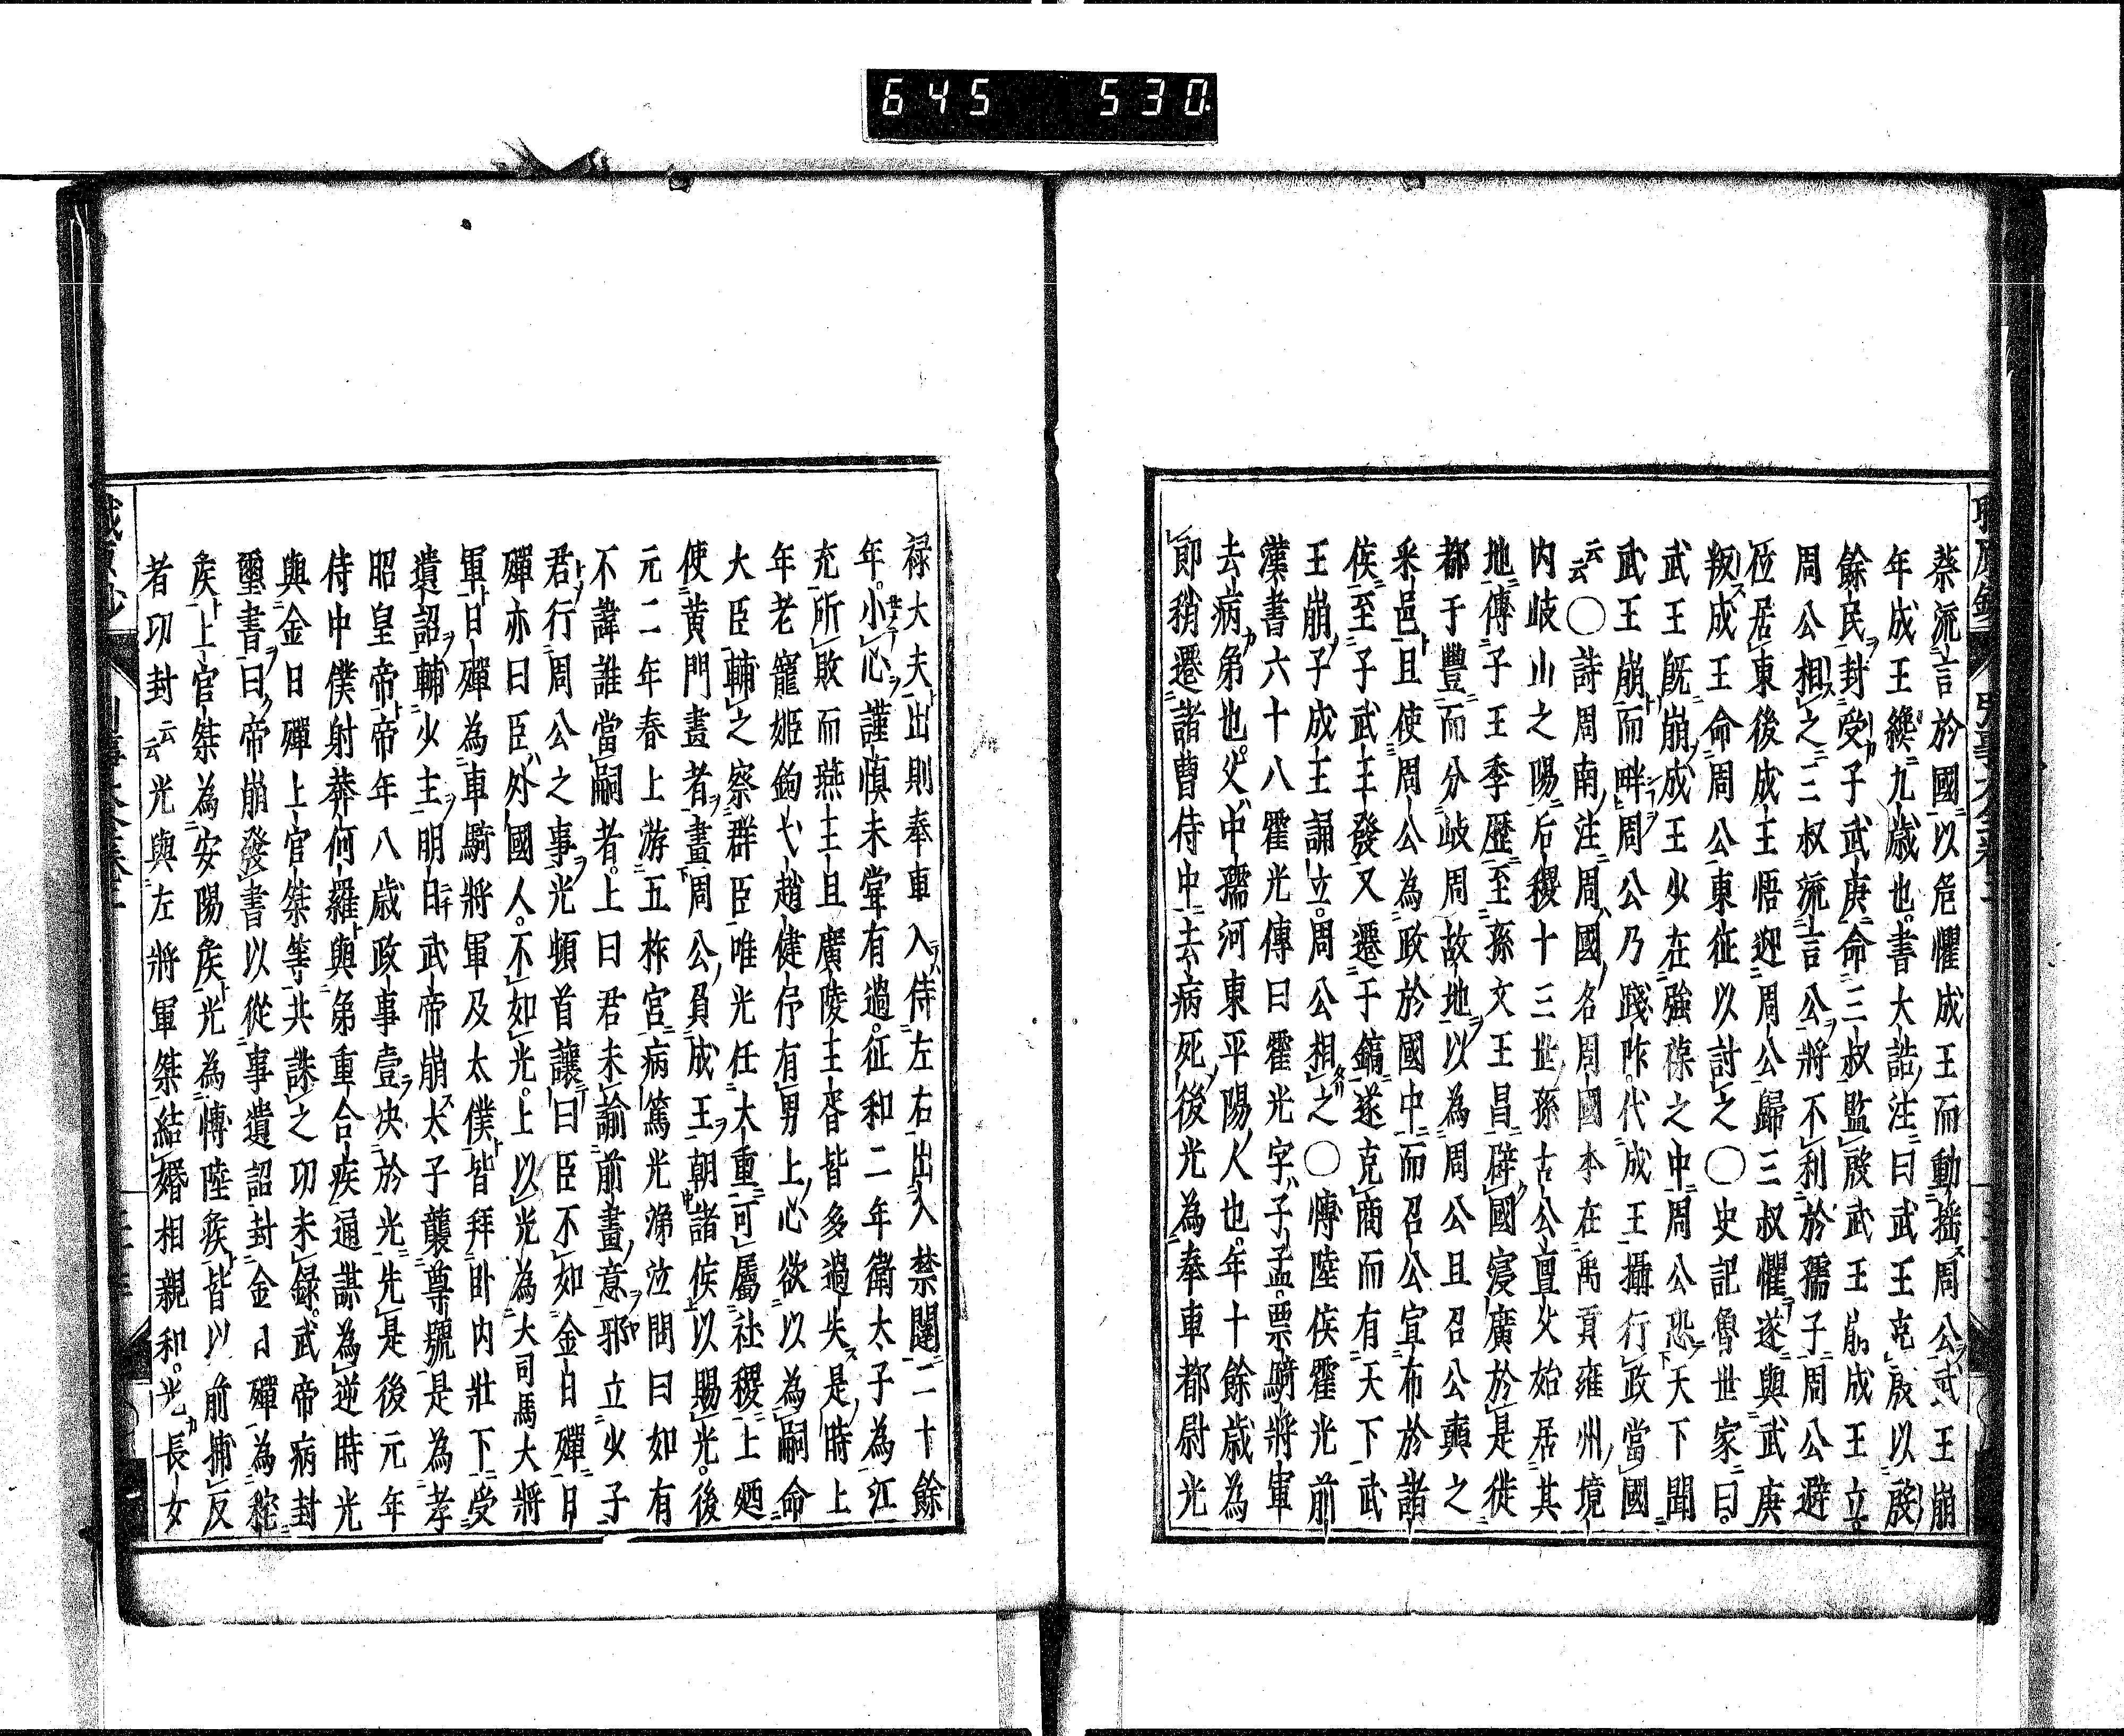 645 530.
蔡流言於國以危懼成王而動揺周公武王崩
年成王纔九歳也書大誥注曰武王克殷以殷
餘民封受子武庚命三叔監殷武王崩成王立
周公相之三叔流言公將不利於孺子周公避
位居東後成王悟迎周公歸三叔懼遂與武庚
叛成王命周公東征以討之〇史記魯世家曰
武王既崩成王少在強葆之中周公恐天下聞
武王崩而畔周公乃踐阼代成王攝行政當國
云云〇詩周南注周國名周國本在禹貢雍州境
内岐山之陽后稷十三世孫古公亶父始居其
地傳子王季歴至孫文王昌辟國寖廣於是徙
都于豐而分岐周故地以為周公旦召公奭之
采邑且使周公為政於國中而召公宣布於諸
侯至子武王發又遷于鎬遂克商而有天下武
王崩子成王誦立周公相之〇博陸侯霍光前
漢書六十八霍光傳曰霍光字子孟票騎將軍
去病弟也父中孺河東平陽人也年十餘歳為
郎稍遷諸曹侍中去病死後光為奉車都尉光
禄大夫出則奉車入侍左右出入禁闥二十餘
年小心謹慎未甞有過征和二年衛太子為江
充所敗而燕王旦廣陵王胥皆多過失是時上
年老寵姫鉤弋趙倢伃有男上心欲以為嗣命
大臣輔之察群臣唯光任大重可屬社稷上廼
使黄門畫者畫周公負成王朝諸侯以賜光後
元二年春上游五柞宮病篤光涕泣問曰如有
不諱誰當嗣者上曰君未諭前畫意邪立少子
君行周公之事光頓首讓曰臣不如金日磾日
磾亦曰臣外國人不如光上以光為大司馬大將
軍日磾為車騎將軍及太僕皆拜卧内壯下受
遺詔輔少主明日武帝崩太子襲尊號是為孝
昭皇帝帝年八歳政事壹决於光先是後元年
侍中僕射莽何羅與弟重合侯通謀為逆時光
與金日磾上官桀等共誅之功未録武帝病封
璽書曰帝崩發書以從事遺詔封金日磾為秺
侯上官桀為安陽侯光為博陸侯皆以前捕反
者功封云云光與左將軍桀結婚相親和光長女